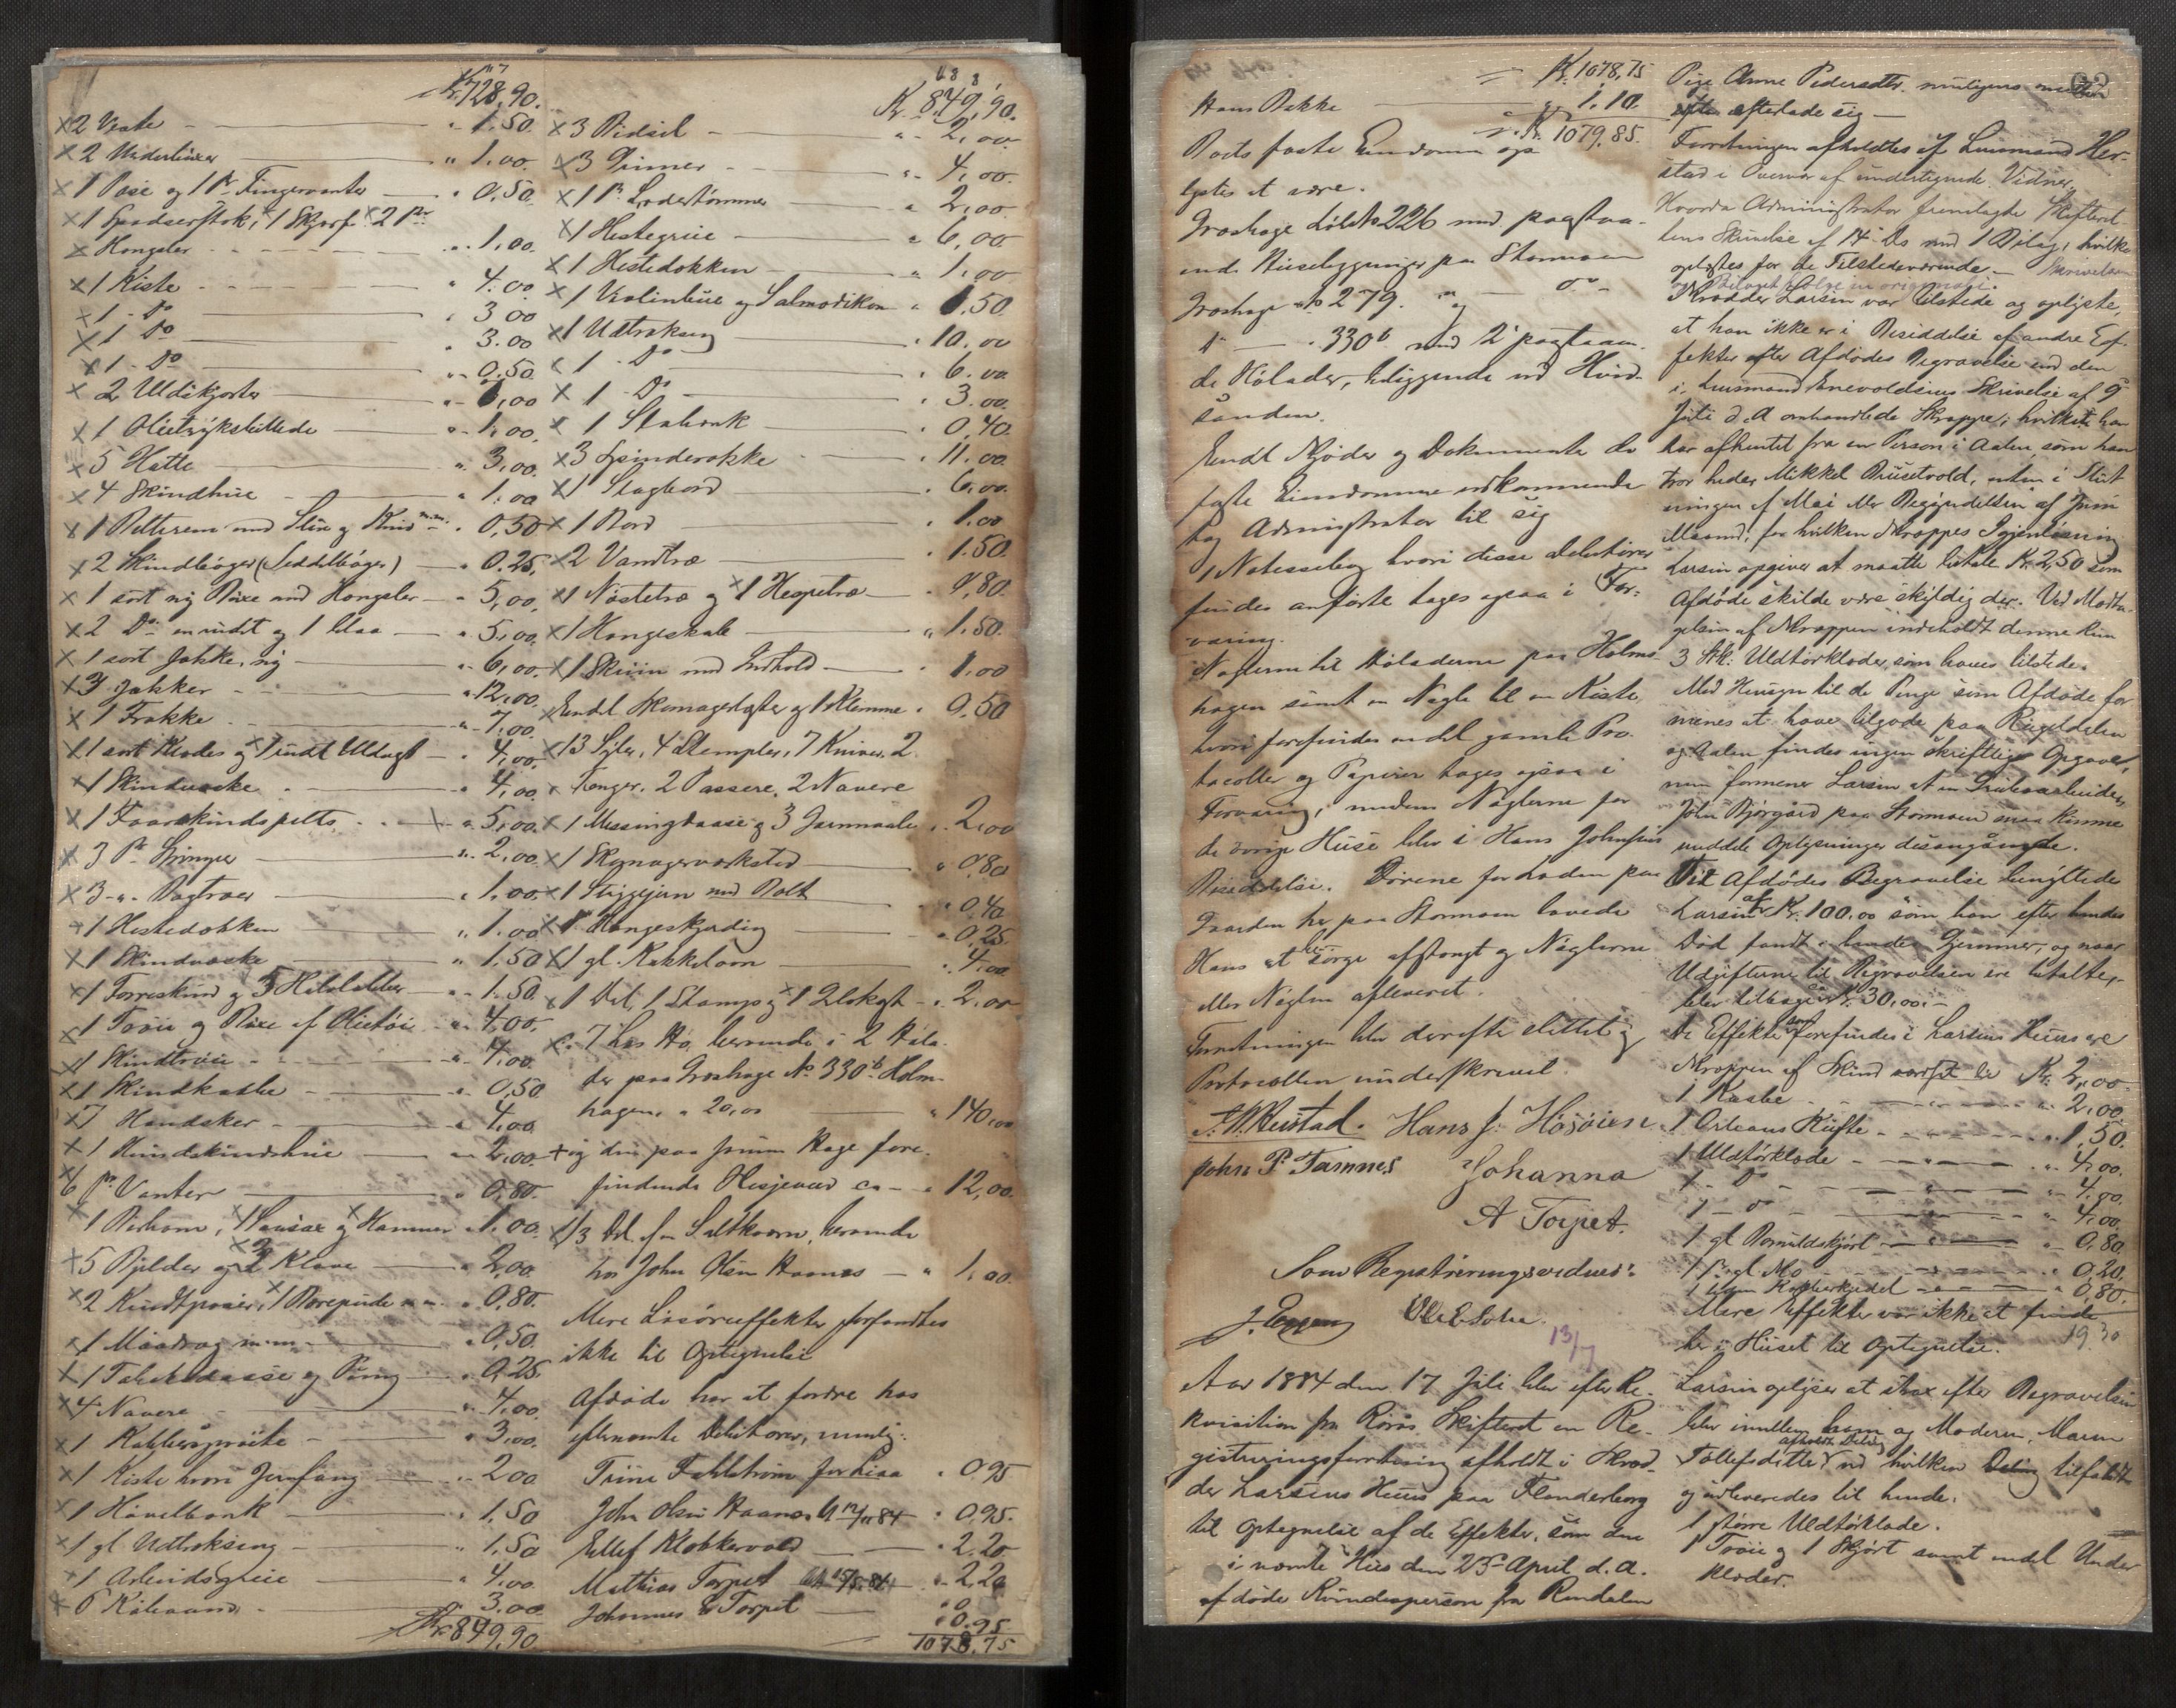 Kr. 728,90.
x 2 Veste — " 1.50.
x 2 Underbuxer — " 1.00.
x 1 Pose og 1 Pr Fingervanter — " 0,50.
x 1 Spadserstok, x 1 Skjærf x 2 Pr
x Hongsler — " 1,00.
x 1 Kiste — " 4.00.
x 1 - Do — " 3 00
x 1 Do — " 3.00
x 1 - Do — " 0.50.
x 2 Uldskjorter — " 1,00
x 1 Olietryksbillede — " 1,00.
x 5 Hatte — " 3,00.
x 4 Skindhue — " 1.00
x 1 Belterem med Slire og Kniv m.m. " 0,50
x 2 Skindbøger (Seddelbøger) — " 0.25.
x 1 sort ny Buxe med Hongsler — " 5,00.
x 2 Do en rudet og 1 blaa — " 5,00.
x 1 sort Jakke, ny — " 6,00.
x 3 Jakker — " 12,00.
x 1 Frakke — " 7,00.
x 1 sort Klædes og x 1 rudt Uldsgt — " 4,00.
x 1 Skindveske — " 4,00.
x 1 Faarskindspelts — " 5,00.
x 3 Pr Stringer — " 2,00.
x 3 -"- Bogtræer — " 1.00.
x 1 Hestedækken — " 1.00
x 1 Skindveske — " 1.50
x 1 Forreskind og 3 Hælelabber — " 1.50.
x 1 Trøie og Buxe af Olietøi — " 4,00.
x 1 Skindtrøie — " 4,00
x 1 Skindkasket — " 0,50
x 7 Handsker — " 4,00.
x 1 Hundeskindshue — " 2,00.
x 6 Pr Vanter — " 0,80.
x 1 Bishorn, x 1 Sausax x Hammer " 1.00.
x 5 Bjelder og x 2 Klave — " 2,00.
x 2 Kruttposer, x 1 Borepude " 0,80.
x 1 m.m. " 0,50.
x 1 Tobaksdaase og Pung — " 0,25.
x 4 Navere — " 4,00.
x 1 Kobbersprøite — " 3,00.
x 1 Kiste hvori Jernfang — " 2 00
x 1 Høvelbænk — " 1,50
x 1 gl. Udtræksseng — " 1.50
x 1 Arbeidsgreie — " 4,00.
x 6 — " 3.00
Kr 849,90.
Kr 849,90.
x 3 Bidsel — " 2,00.
x 3 Grimer — " 4,00.
x 1 Pr Lædertømmer — " 2,00.
x 1 Hestegreie — " 6,00
x 1 Hestedækken — " 1.00
x 1 Violinbue og Salmodikon " 1,50.
x 1 Udtrækseng — " 10.00
x 1 - Do — " 6.00
x 1 - Do — " 3.00.
x 1 Slabænk — " 0,40.
x 3 Spinderokke — " 11.00.
x 1 Slagbord — " 6,00.
x 1 Bord — " 1.00
x 2 Vandtræ — " 1.50.
x 1 Nøstetræ og x 1 Hespetræ — " 0,80.
x 1 Hængeskab — " 1.50.
x 1 Skriin med Indhold — " 1.00
x Endel Skomagerlæster og 1 Klemme " 0.50
x 13 Syler, 4 Stempler, 7 Knive, 2
x Tænger, 2 Passere, 2 Navere
x 1 Messingdaase og 3 Jernnaale " 2,00
x 1 Skomagerværksted — " 0,80
x 1 Stiggejern med Bolt — " 0,40
x 1 — " 0,25.
x 1 gl. Kakkelovn — " 4,00
x 1 Vet, 1 Stamp og x 1 Blokgt — " 2,00
x 7 Læs Hø, beroende i 2 Høla-
der paa Græshage No. 330 b Holm-
hagen a 20,00 — " 140,00
+ og den paa samme Hage fore-
findende Hesjeved ca — " 12,00.
x 1/3 Del af en Saltkværn, beroende
hos John Olsen Haanæs — " 1,00.
Mere Løsøreeffekter forfandtes
ikke til Optegnelse
Afdøde har at fordre hos
efternævnte Debitorer, nemlig:
Trine Dahlstrøm for Lisa " 0,95
John Olsen Haanæs bt 12/11 84 " 0,95.
Ellef Klokkervold — " 2.20
Mathias Torpet — " 2,20
Johannes E Torpet — " 0,95
1078,75
Kr. 1078,75
Hans Bakke — " 1.10.
Kr. 1079.85.
Boets faste Eiendomme op-
lystes at være.
Græshage Løbe No 226 med paastaa-
ende Husebygninger paa Stormoen
Græshage No 279. " og — Do —
1 — " 330 b med 2 paastaaen-
de Hølader, beliggende ved Hvid-
sanden.
Endel Skjøder og Dokumenter de
faste Eiendomme vedkommende
tog Administrator til sig
1 Notessebog hvori disse Debitorer
findes anførte toges ogsaa i For-
varing.
Nøglerne til Høladerne paa Holm-
hagen samt en Nøgle til en Kiste
hvori forefindes endel gamle Pro-
tocoller og Papirer toges ogsaa i
Forvaring, medens Nøglerne for
de øvrige Huse blev i Hans Johnsens
Besiddelse. Dørene for Laden paa
Gaarden her paa Stormoen lovede
Hans at besørge afstængt og Nøglerne
eller Nøglen afleveret.
Forretningen blev derefter sluttet og
Protocollen underskrevet.
J. W. Herstad. Hans J. Høsøien
John P. Tamnes Johanna
A Torpet.
Som Registreringsvidner:
J. Eggen Ole E Sohn.
13/7
Aar 1884 den 17 Juli blev efter Re-
kvisition fra Røros Skifteret en Re-
gistreringsforretning afholdt i Skræd-
der Larsens Huus paa Flanderborg
til Optegnelse af de Effekter, som den
i nævnte Hus den 25de April d. A.
afdøde Kvindesperson fra Rendalen
Pige Anne Pedersdtr. muligens maatte
efterlade sig —
Forretningen afholdtes af Lensmand Her-
stad i Overvær af undertegnede Vidner,
Hvorda Administrator fremlagde Skifteret-
tens Skrivelse af 14 Ds med 1 Bilag, hvilke
oplæstes for de Tilstedeværende. — Skrivelsen
og Bilaget følge in originale.
Skrædder Larsen var tilstede og oplyste,
at han ikke er i Besiddelse af andre Ef-
fekter efter Afdødes Begravelse end den
i Lensmand Enevoldsens Skrivelse af 9
Juli d. A omhandlede Skræppe, hvilken han
har afhentet fra en Person i Aalen, som han
tror heder Mikkel Bruustvold, enten i Slut-
ningen af Mai eller Begyndelsen af Juni
Maaned, for hvilken Skræppes Igjenløsning
Larsen opgiver at maatte betale Kr. 2,50 som
Afdøde skulde være skyldig der. Ved Modta-
gelsen af Skræppen indeholdt denne kun
3 Stk: Uldtørklæder, som haves tilstede.
Med Hensyn til de Penge som Afdøde for-
menes at have tilgode paa Rugeldalen
og Aalen findes ingen skriftlige Opgaver,
men formener Larsen, at en Grubearbeider,
John Bjørgård paa Stormoen maa kunne
meddele Oplysninger desangående.
Til Afdødes Begravelse benyttede
Larsen af Kr. 100.00 som han efter hendes
Død fandt i hendes Gjemmer, og naar
Udgifterne til Begravelsen ere betalte,
blev tilbage ca Kr. 30,00. —
De Effekter som forefindes i Larsens Huus ere
Skræppen af Skind værdsat til Kr. 2,00
1 Kaabe — " 2,00.
1 Orleans Kufte — " 1,50.
1 Uldtørklæde — " 4,00.
1 - Do — " 4,00.
1 - Do — " 4,00
1 gl. Bomuldskjørt — " 0,80.
1 Pr. gl. Sko — " 0,20.
1 liden Kobberkjedel — " 0,80.
Mere Effekter var ikke at finde 19.30
her i Huset til Optegnelse.
Larsen oplyser at strax efter Begravelsen
blev imellem ham og Moderen, Maren
Tollefsdatter afholdt Deling ved hvilken Deling tilfaldt
og udleveredes til hende.
1 større Uldtørklæde.
1 Trøie og 1 Skjørt samt endel Under-
klæder.